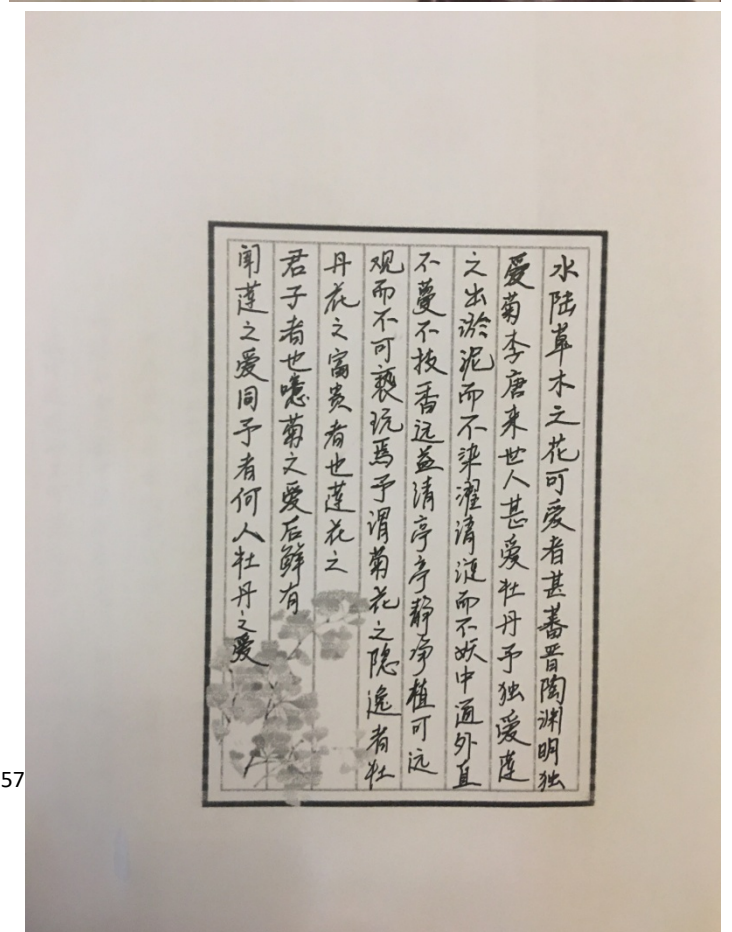 水陆草木之花可爱者甚蕃晋陶渊明独
爱菊李唐来世人甚爱牡丹予独爱莲
之出淤泥而不染濯清涟而不妖中通外直
不蔓不枝香远益清亭亭静净植可远
观而不可亵玩焉予谓菊花之隐逸者牡
丹花之富贵者也莲花之
君子者也噫菊之爱后鲜有
闻莲之爱同予者何人牡丹之爱
57